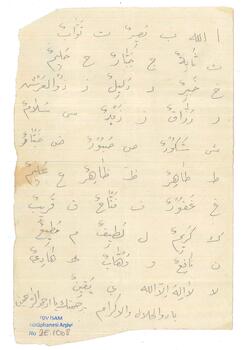 ا الله ب بَصِيرٌ ت تَوَّابٌ
ث ثَابِتٌ ج جَبَّارٌ ح حَلِيمٌ
خ خَبِيرٌ د دَلِيلٌ ذ ذو العرش
ر رَزَّاقٌ ز س سَلَامٌ
ش شَكُورٌ ص صَبُورٌ ض ضَارٌّ
ط طَاهِرٌ ظ ظَاهِرٌ ع عَلِيمٌ
غ غَفُورٌ ف فَتَّاحٌ ق قَرِيبٌ
ك كَرِيمٌ ل لَطِيفٌ م
ن نَافِعٌ و وَهَّابٌ ه هَادِي
لا لا اله الا الله ي
برحمتك يا ارحم الراحمين
يا ذو الجلال والاكرام
TDV İSAM
Kütüphanesi Arşivi
No 2E.1068